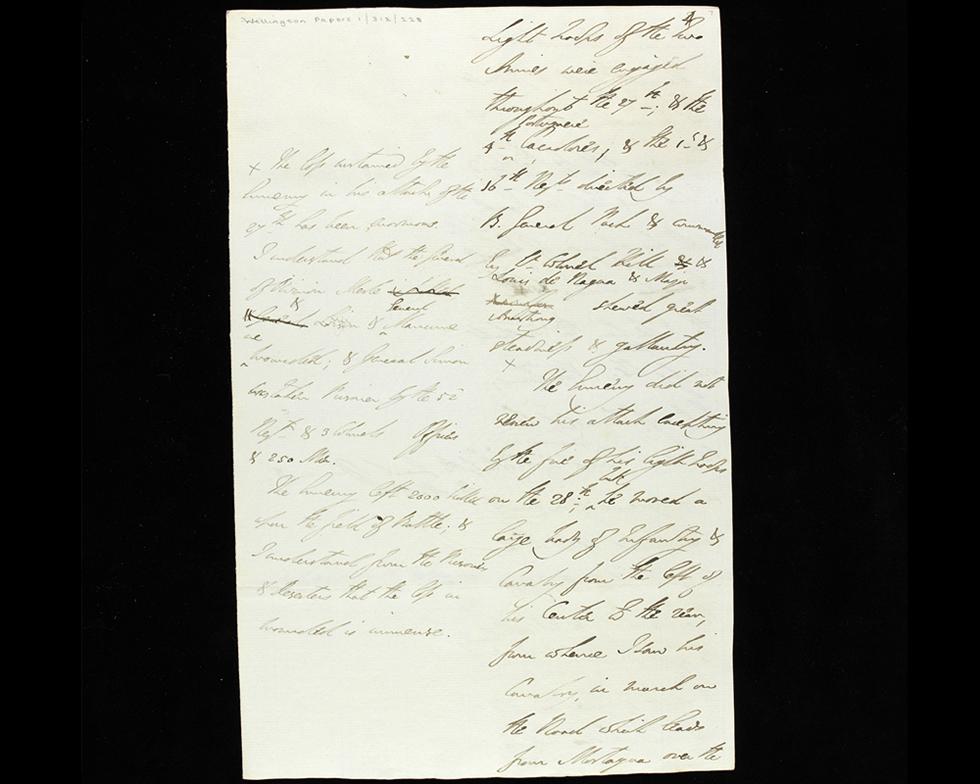 Wellington Papers 1/312/228
4
light troops of the two
Armies were engaged
throughout the 27th; & the
Portuguese
4th Cacadores, & the 1st &
16th Regts directed by
B. General Pack & commanded
by Lt Colonel Hill & &
Louis de Regoa & Major
Armstrong shewed great
steadiness & gallantry.
x
The Enemy did not
renew his attack excepting
by the fire of his light troops
but
on the 28th; he moved a
large body of Infantry &
Cavalry from the left of
his Center to the rear,
from whence I saw his
Cavalry, in march on
the Road which leads
from Mortagoa over the
x The loss sustained by the
Enemy in his attack of the
27th has been enormous.
I understand that the General
of Division Merle
&
General
Loison & Maucune
are
wounded; & General Simon
was taken Prisoner by the 52
Regt & 3 Colonels Officers
& 250 Men.
The Enemy left 2000 killed
upon the field of Battle; &
I understand from the Prisoners
& Deserters that the loss in
wounded is immense.